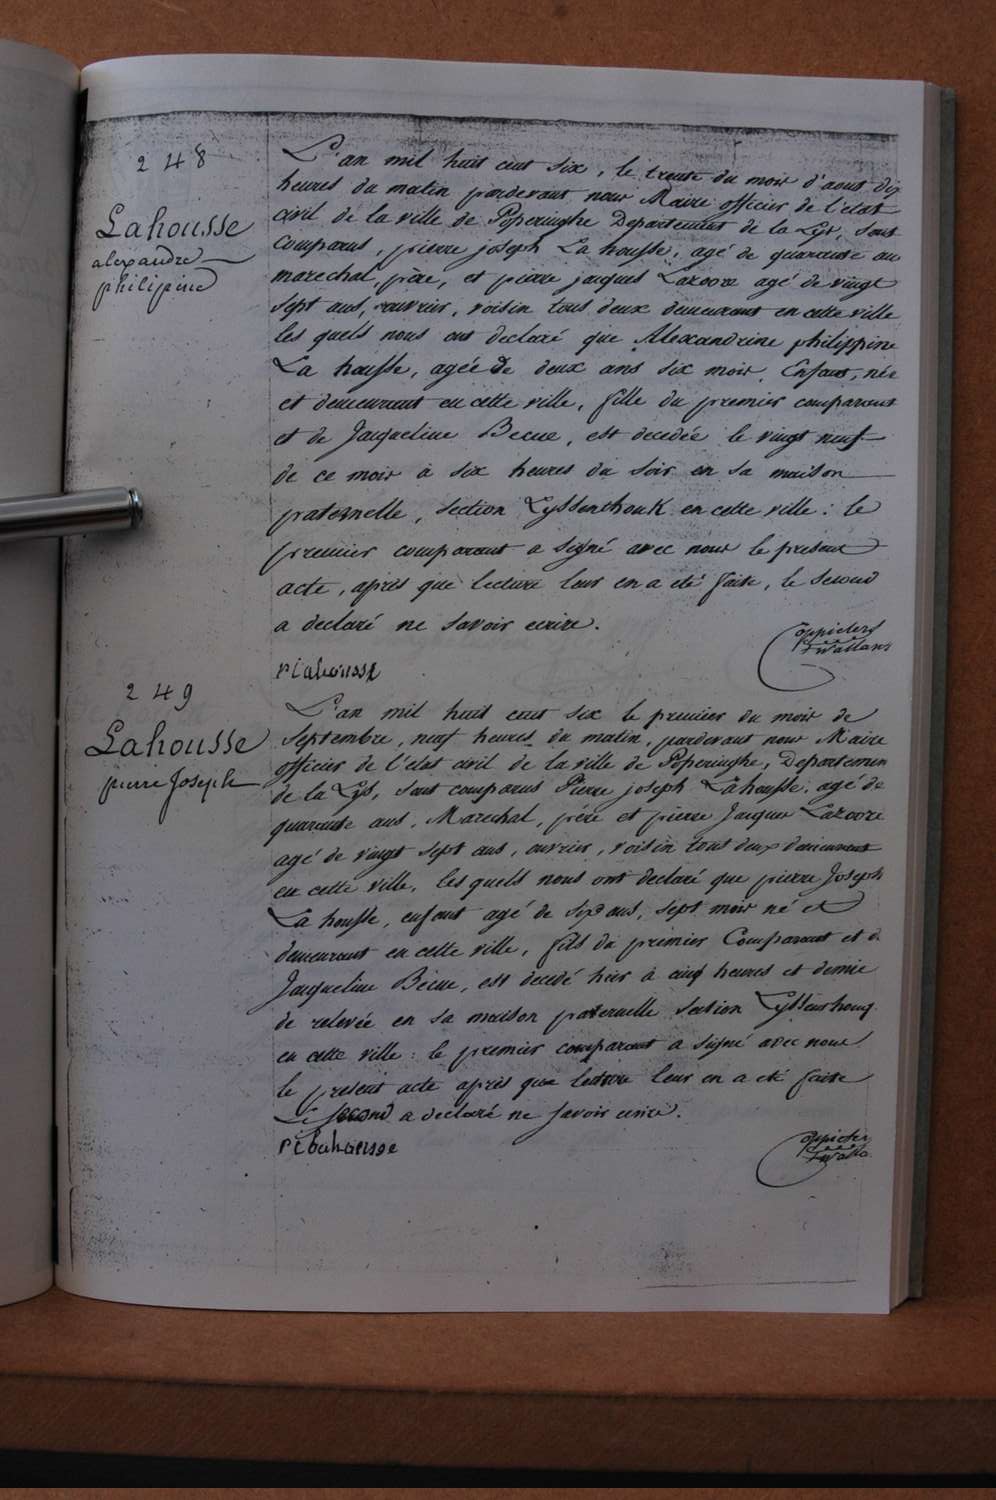 248
Lahousse
alexandre
philipine
L'an mil huit cent six, le trente du mois d'aout dix
heures du matin pardevant nous Maire officier de l'etat
civil de la ville de Poperinghe Departement de la Lys, sont
comparus, pierre joseph La housse, agé de quarante ans
marechal, père, et pierre jacques Lazoore agé de vingt
sept ans, ouvrier, voisin tous deux demeurant en cette ville
les quels nous ont declaré que Alexandrine philippine
La housse, agée de deux ans six mois, Enfant, née
et demeurant en cette ville, fille du premier comparant
et de Jacqueline Becue, est decedée le vingt neuf
de ce mois à six heures du soir en sa maison
paternelle, section Lyssenthouk en cette ville : le
premier comparant a signé avec nous le present
acte, après que lecture leur en a eté faite, le second
a declaré ne savoir ecrire.
249
Lahousse
pierre Joseph
L'an mil huit cent six le premier du mois de
Septembre, neuf heures du matin, pardevant nous Maire
officier de l'etat civil de la ville de Poperinghe, Departemen
de la Lys, sont comparus Pierre joseph Lahousse, agé de
quarante ans, Marechal, pére et pierre Jacques Lazoore
agé de vingt sept ans, ouvrier, voisin tous deux demeurant
en cette ville, les quels nous ont declaré que pierre Joseph
La housse, enfant agé de six ans, sept mois né et
demeurant en cette ville, fils du premier Comparant et de
Jacqueline Bécue, est decedé hier à cinq heures et demie
de relevée en sa maison paternelle section Lyssenthouq
en cette ville : le premier comparant a signé avec nous
le present acte après que lecture leur en a eté faite
Le second a declaré ne savoir ecrire.